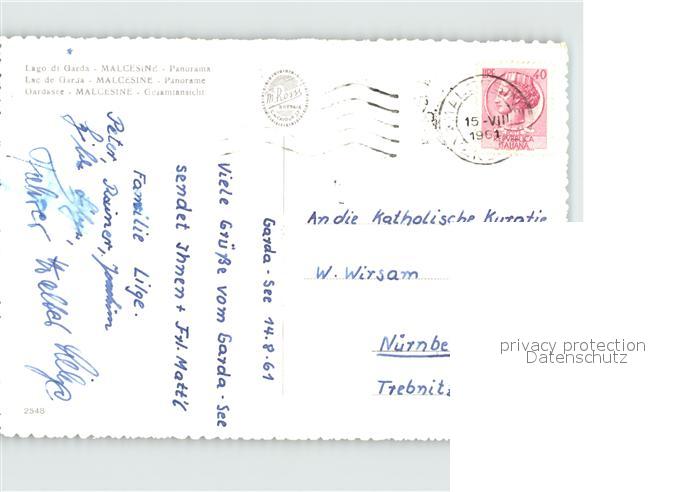 Lago di Garda - MALCESINE - Panorama
Lac de Garda - MALCESINE - Panorame
Gardasee - MALCESINE - Gesamtansicht
LIRE 40
15-VIII
1961
REPVBBLICA
ITALIANA
Garda-See 14.8.61
Viele Grüße vom Garda-See
sendet Ihnen + Frl. Matt'l
Familie Lilge.
Peter, Rainer, Joachim
An die Katholische Kuratie
W. Wirsam
Nürnbe
Trebnitz
2548
privacy protection
Datenschutz